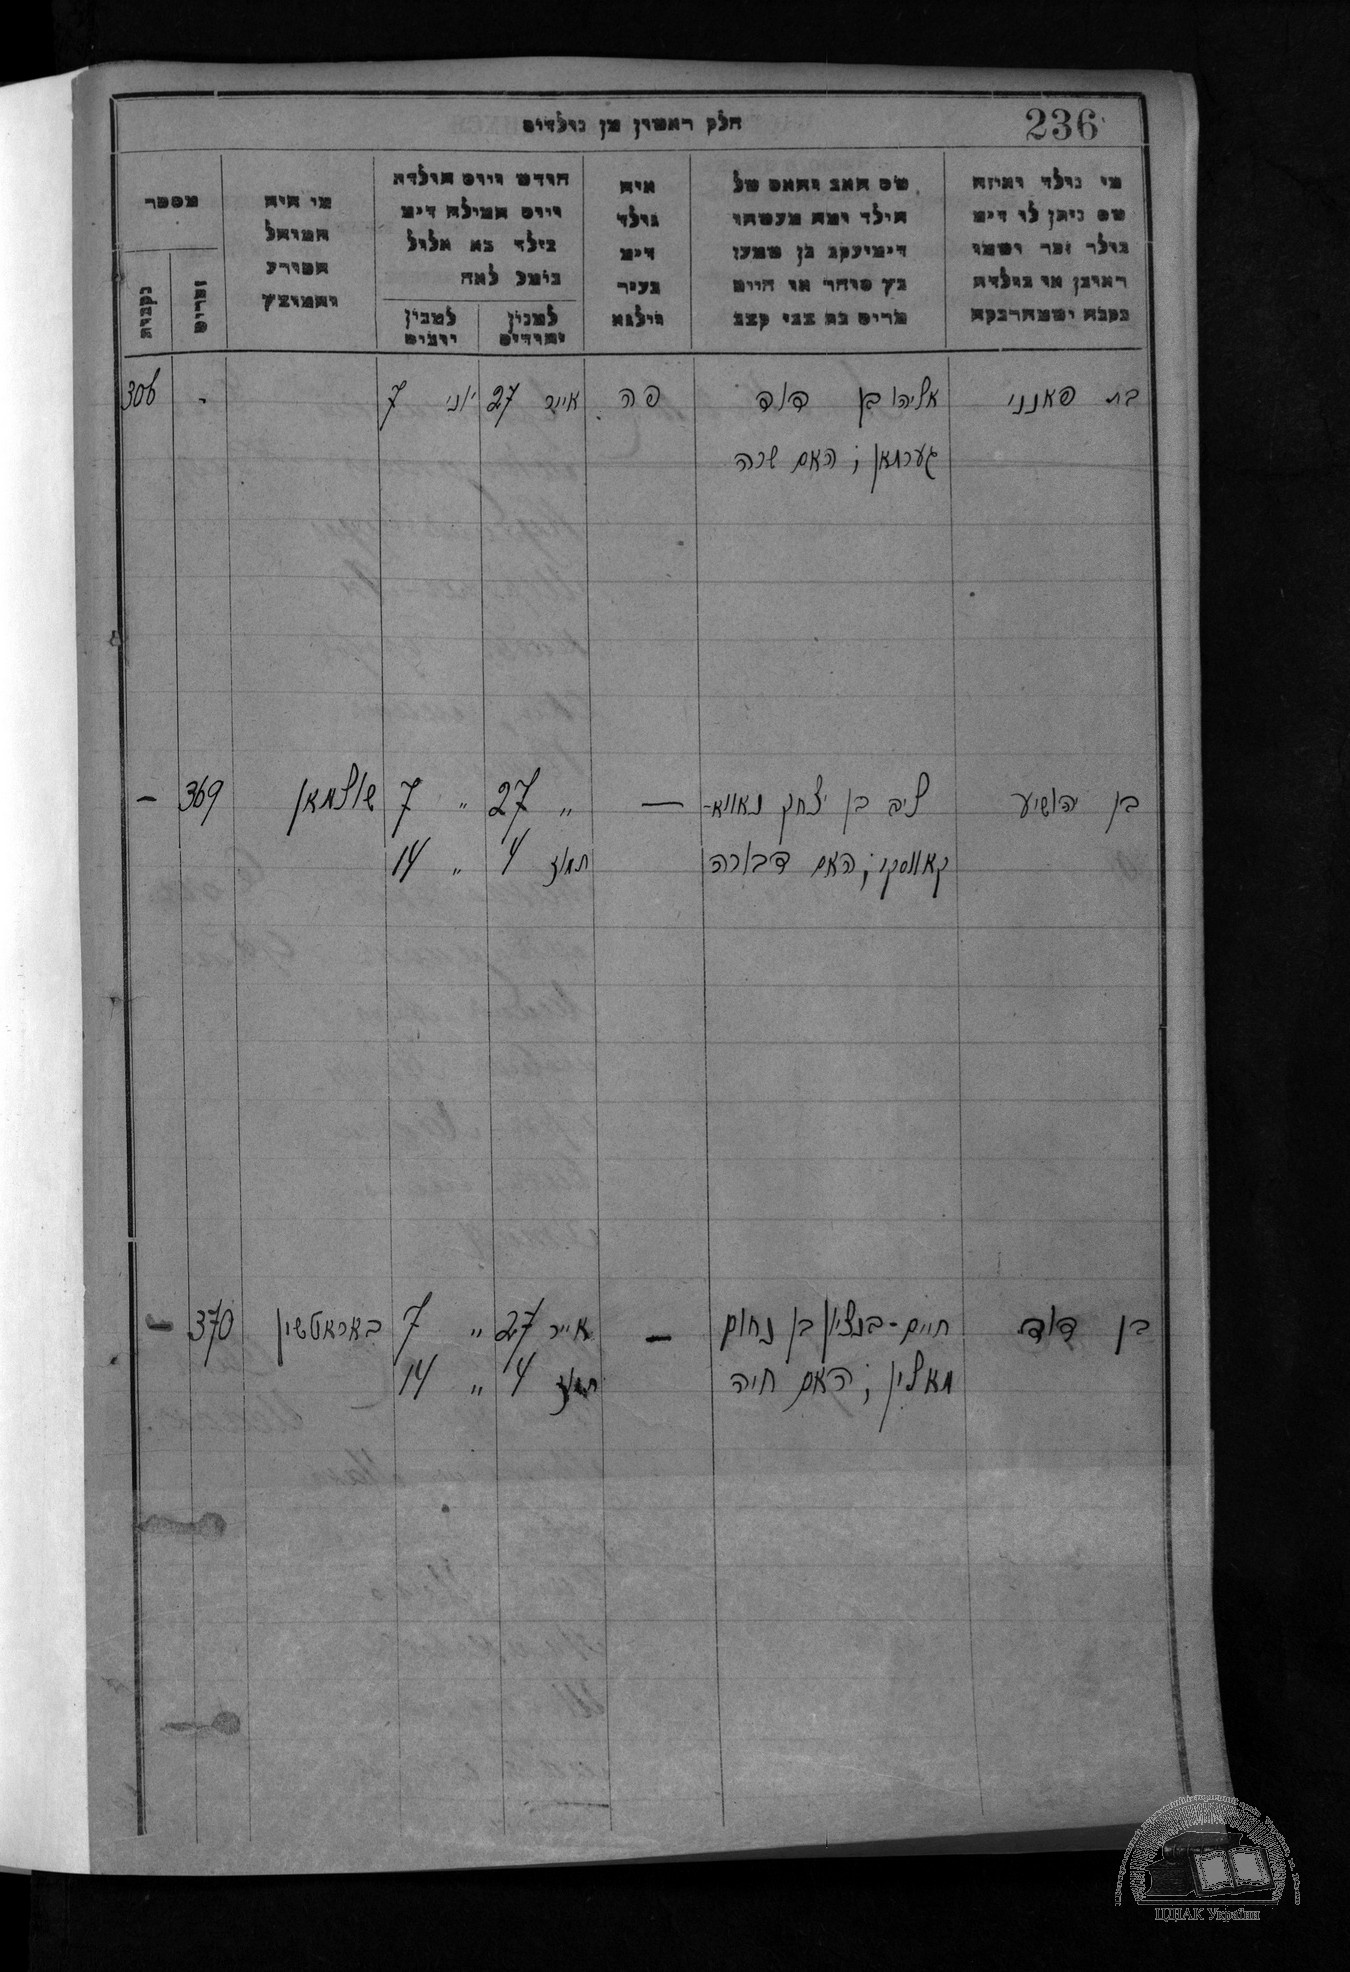 236
חלק ראשון מן נולדים
מי נולד ואיזה
שם ניתן לו דימ
נולד זכר ושמו
ראובן או נולדה
נקבה ושמה רבקה
שם האב והאם של
הילד ומה מעשהו
דימ יעקב בן שמעון
כץ סוחר או חייט
מרים בת צבי קצב
איה
נולד
דימ
בעיר
ווילנא
חודש ויום הולדת
ויום המילה דימ
נילד בא אלול
נימל לאח
למנין
יהודים
למנין
יונים
מי היה
המוהל
הפורע
והמוצץ
מספר
זכרים
נקבות
בת פאנני
אליהו בן דוד
גערמאן ; האם שרה
פה
אייר 27
יוני 7
306
בן יהושיע
ליב בן יצחק נאווא-
קאווסקי ; האם דבורה
—
" 27 " 7
תמוז 4 " 14
שולמאן
369
—
בן דוד
חיים-בנציון בן נחום
מאלין ; האם חיה
—
אייר 27 " 7
תמוז 4 " 14
באראטשין
370
—
ЦДІАК України